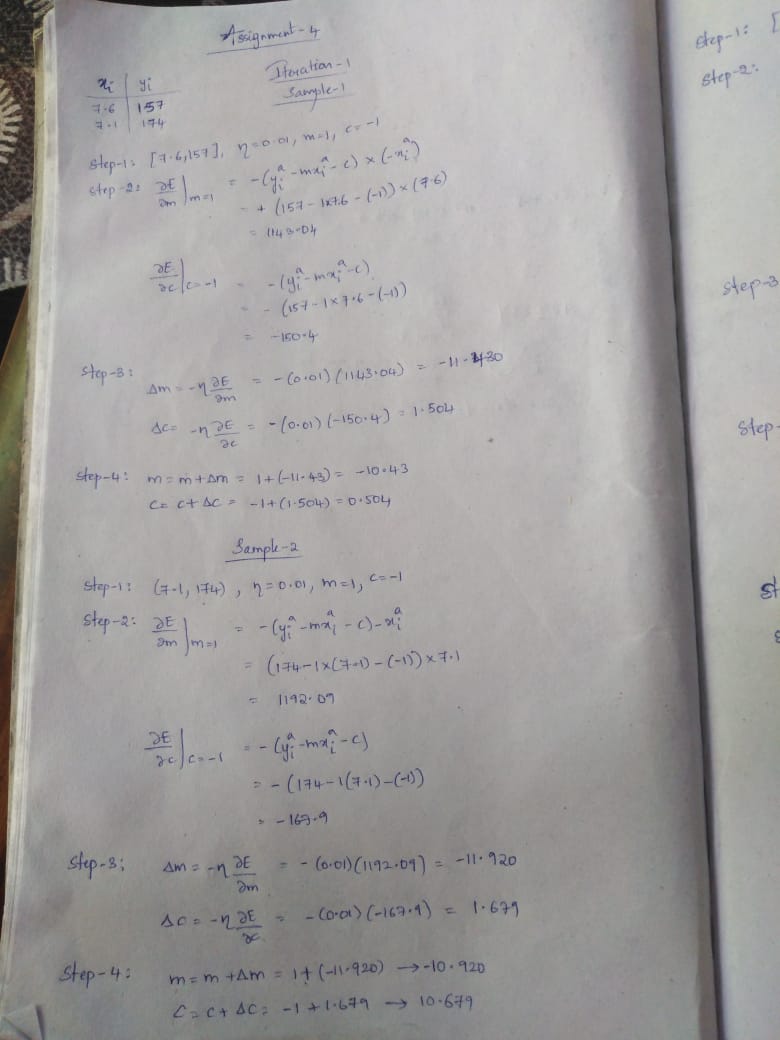 Assignment-4
Iteration-1
Sample-1
xi | yi
7.6 | 157
7.1 | 174
Step-1: [7.6,157], η=0.01, m=1, c=-1
Step-2: ∂E/∂m |m=1 = -(yᵢᵃ - mxᵢᵃ - c) × (-xᵢᵃ)
= + (157 - 1×7.6 - (-1)) × (7.6)
= 1143.04
∂E/∂c |c=-1 = -(yᵢᵃ - mxᵢᵃ - c)
= - (157 - 1×7.6 - (-1))
= -150.4
Step-3: Δm = -η ∂E/∂m = -(0.01) (1143.04) = -11.430
Δc = -η ∂E/∂c = -(0.01) (-150.4) = 1.504
Step-4: m = m + Δm = 1 + (-11.43) = -10.43
C = c + ΔC = -1 + (1.504) = 0.504
Sample-2
Step-1: (7.1, 174), η=0.01, m=1, c=-1
Step-2: ∂E/∂m |m=1 = -(yᵢᵃ - mxᵢᵃ - c) - xᵢᵃ
= (174 - 1×(7.1) - (-1)) × 7.1
= 1192.09
∂E/∂c |c=-1 = -(yᵢᵃ - mxᵢᵃ - c)
= -(174 - 1(7.1) - (-1))
= -167.9
Step-3; Δm = -η ∂E/∂m = -(0.01)(1192.09) = -11.920
ΔC = -η ∂E/∂c = -(0.01) (-167.9) = 1.679
Step-4: m = m + Δm = 1 + (-11.920) → -10.920
C = c + ΔC = -1 + 1.679 → 10.679
Step-1: [
Step-2:
Step-3
Step-
St